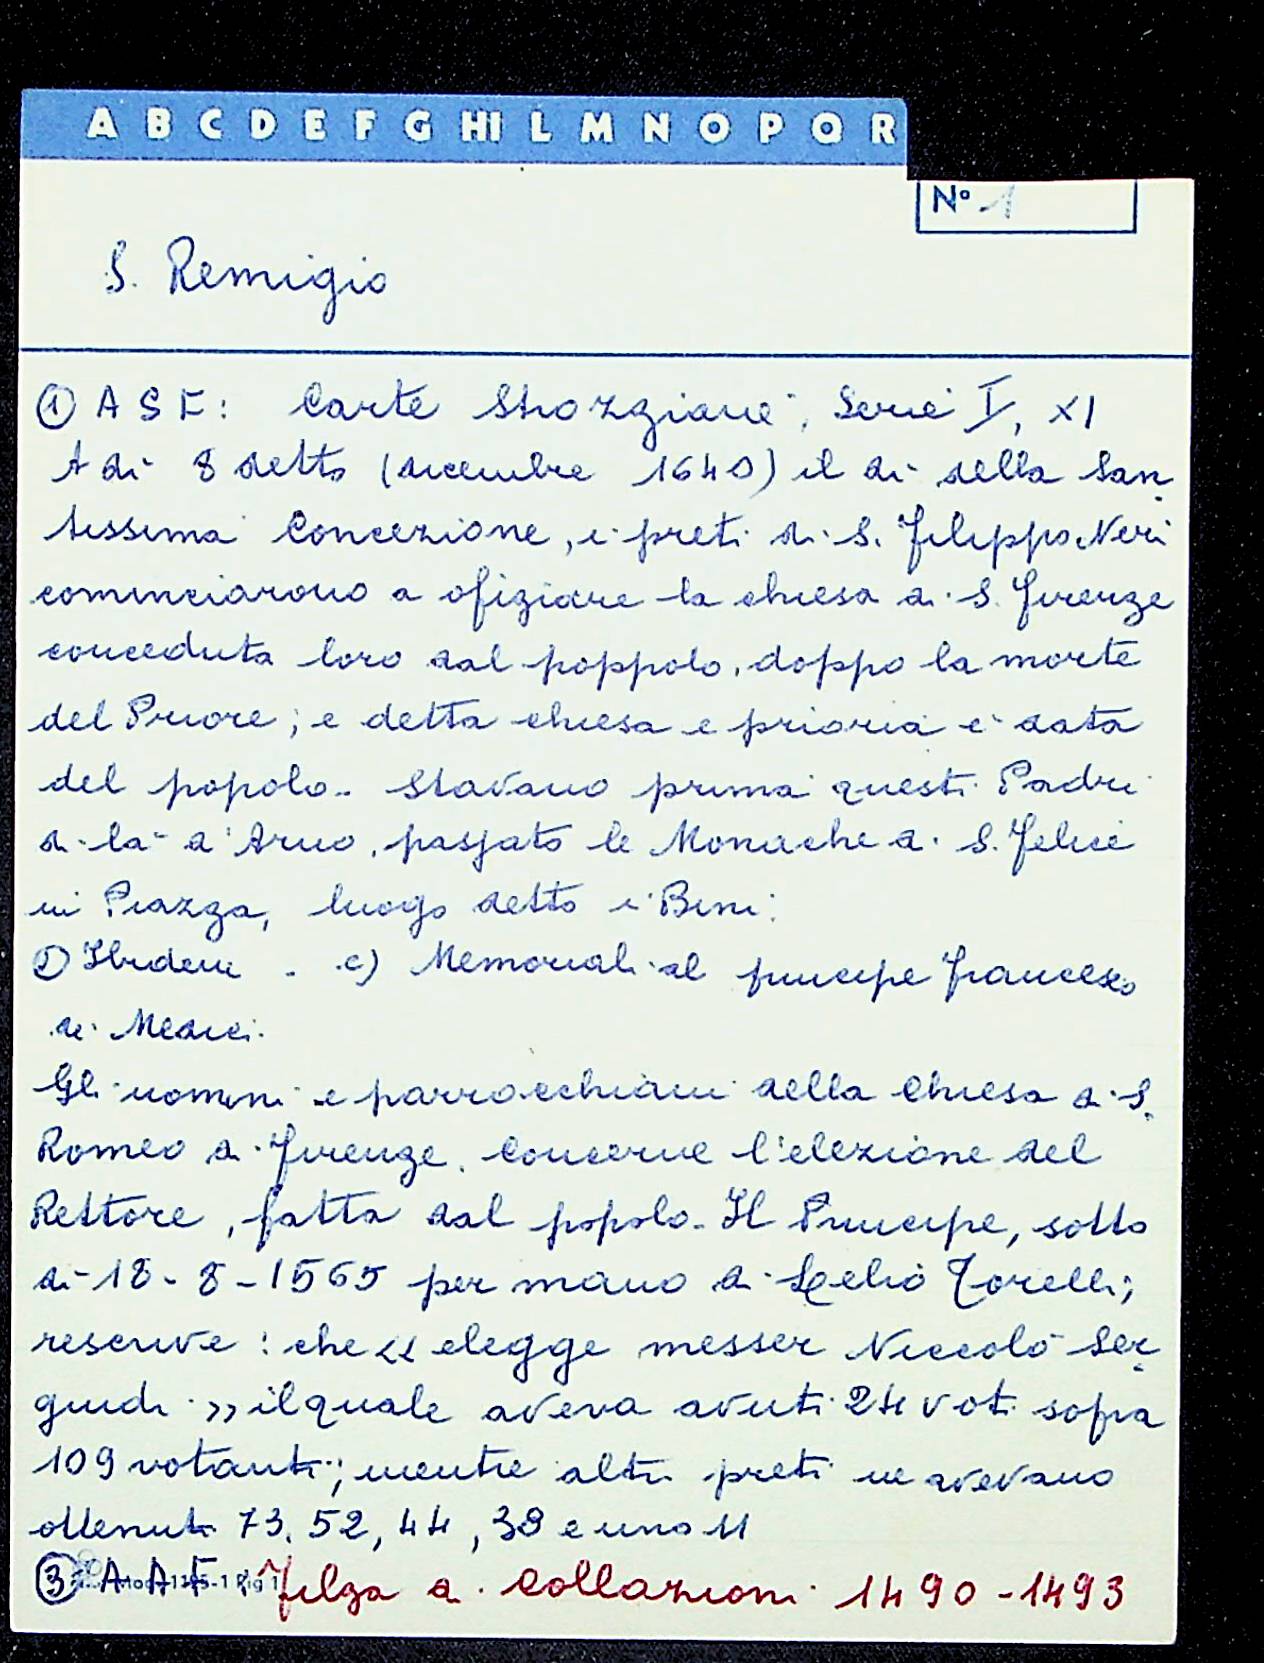 A B C D E F G HI L M N O P Q R
Nº 1
S. Remigio
① A S F: Carte Strozziane, Serie I, XI
A dì 8 detto (dicembre 1640) il dì della San
tissima Concezione, i preti di S. Filippo Neri
cominciarono a ofiziare la chiesa di S. Firenze
conceduta loro dal poppolo, doppo la morte
del Priore; e detta chiesa e prioria è data
del popolo. Stavano prima questi Padri
di là d'Arno, passato le Monache di S. Felice
in Piazza, luogo detto i Bini:
② Ibidem - c) Memoriali al principe Francesco
de Medici.
Gli uomini e parrocchiani della Chiesa di S.
Romeo di Firenze. Concerne l'elezione del
Rettore, fatta dal popolo. Il Principe, sotto
dì 18-8-1565 per mano di Lelio Torelli;
rescrive: che << elegge messer Niccolò Ser
guidi >> il quale aveva avuti 24 voti sopra
109 votanti; mentre altri preti ne avevano
ottenuti 73, 52, 44, 38 e uno 11
③ A A F: Filza di Collazioni 1490-1493